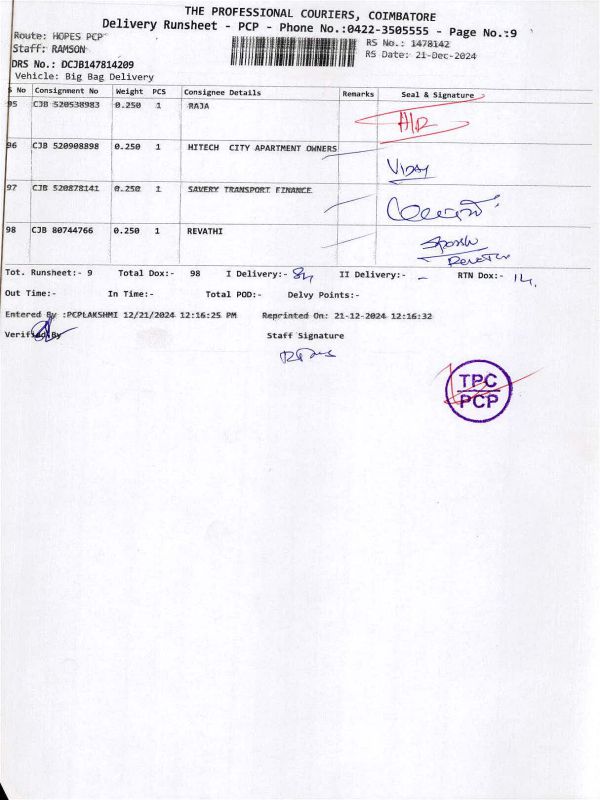 THE PROFESSIONAL COURIERS, COIMBATORE
Delivery Runsheet - PCP - Phone No.:0422-3505555 - Page No.:9
Route: HOPES PCP RS No.: 1478142
Staff: RAMSON RS Date: 21-Dec-2024
DRS No.: DCJB147814209
Vehicle: Big Bag Delivery
S No Consignment No Weight PCS Consignee Details Remarks Seal & Signature
95 CJB 520538983 0.250 1 RAJA
96 CJB 520908898 0.250 1 HITECH CITY APARTMENT OWNERS
Vijay
97 CJB 520878141 0.250 1 SAVERY TRANSPORT FINANCE
98 CJB 80744766 0.250 1 REVATHI
Tot. Runsheet:- 9 Total Dox:- 98 I Delivery:- 84 II Delivery:- - RTN Dox:- 14.
Out Time:- In Time:- Total POD:- Delvy Points:-
Entered By :PCPLAKSHMI 12/21/2024 12:16:25 PM Reprinted On: 21-12-2024 12:16:32
Verified By Staff Signature
TPC
PCP